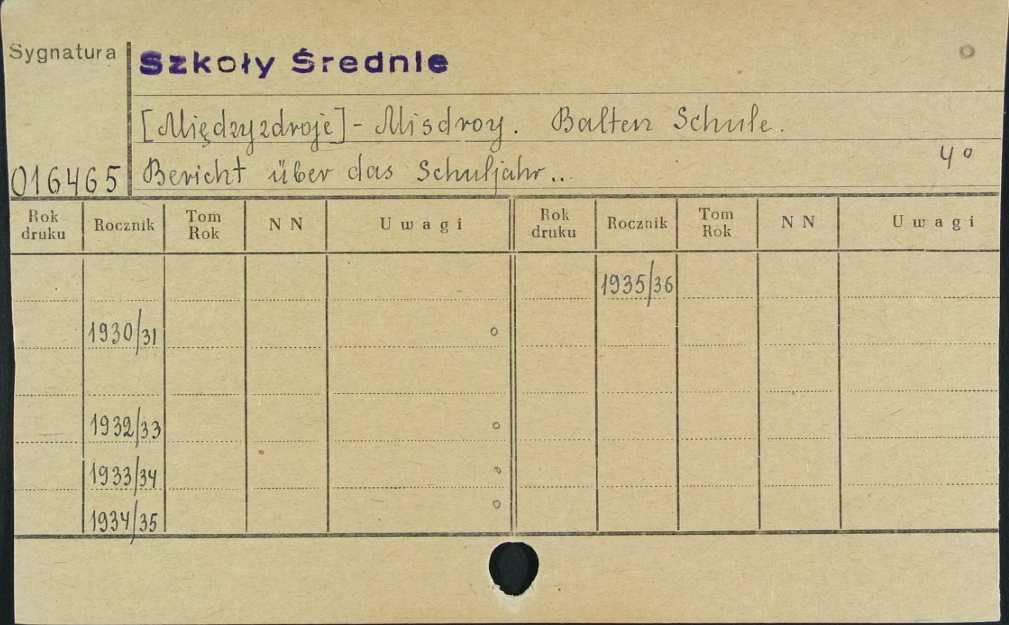 Sygnatura
Szkoły Średnie
[Międzyzdroje] - Misdroy. Balten Schule.
4°
016465 Bericht über das Schuljahr...
Rok druku Rocznik Tom Rok N N Uwagi Rok druku Rocznik Tom Rok N N Uwagi
1935/36
1930/31
1932/33
1933/34
1934/35